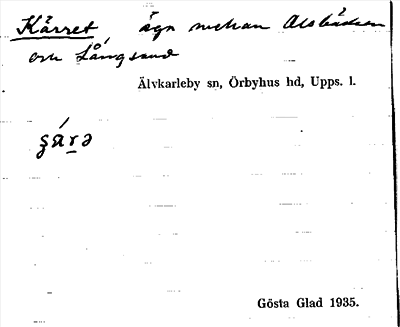 Kärret, äga mellan Olsbäcken
och Långsand
Älvkarleby sn, Örbyhus hd, Upps. l.
Gösta Glad 1935.